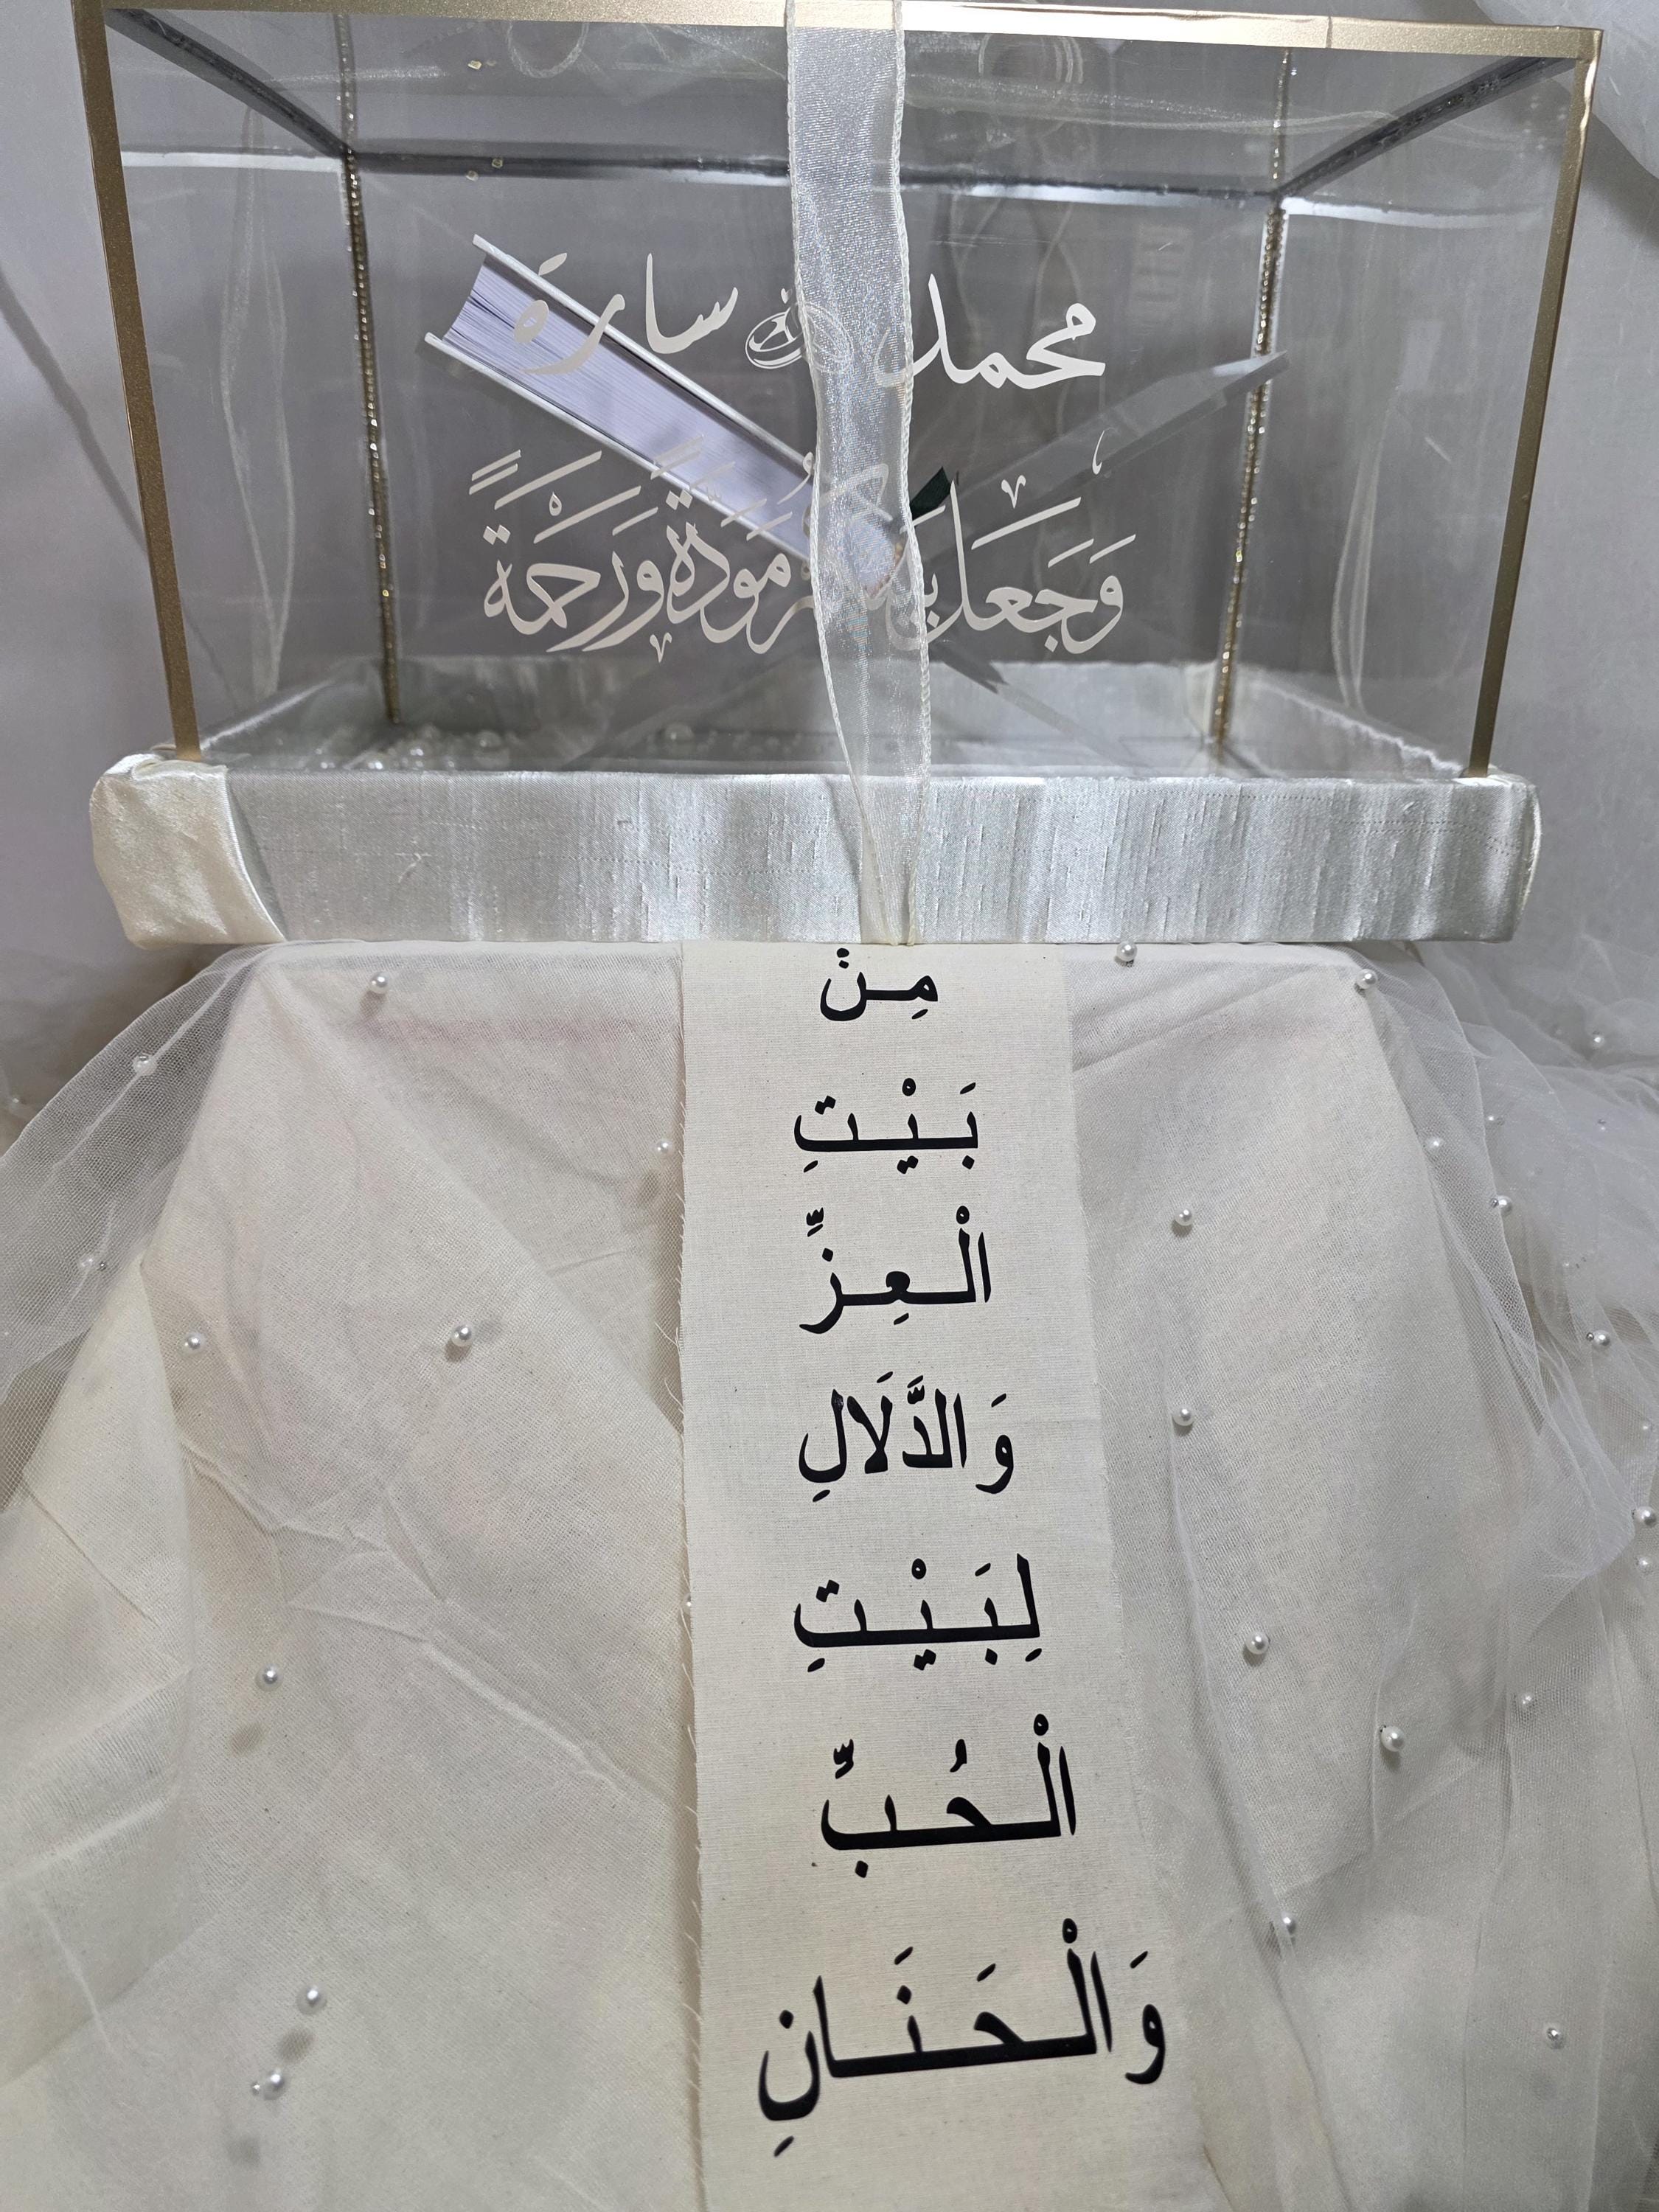 محمد سارة
وَجَعَلَ بَيْنَكُمْ مَوَدَّةً وَرَحْمَةً
مِنْ
بَيْتِ
الْعِزِّ
وَالدَّلَالِ
لِبَيْتِ
الْحُبِّ
وَالْحَنَانِ